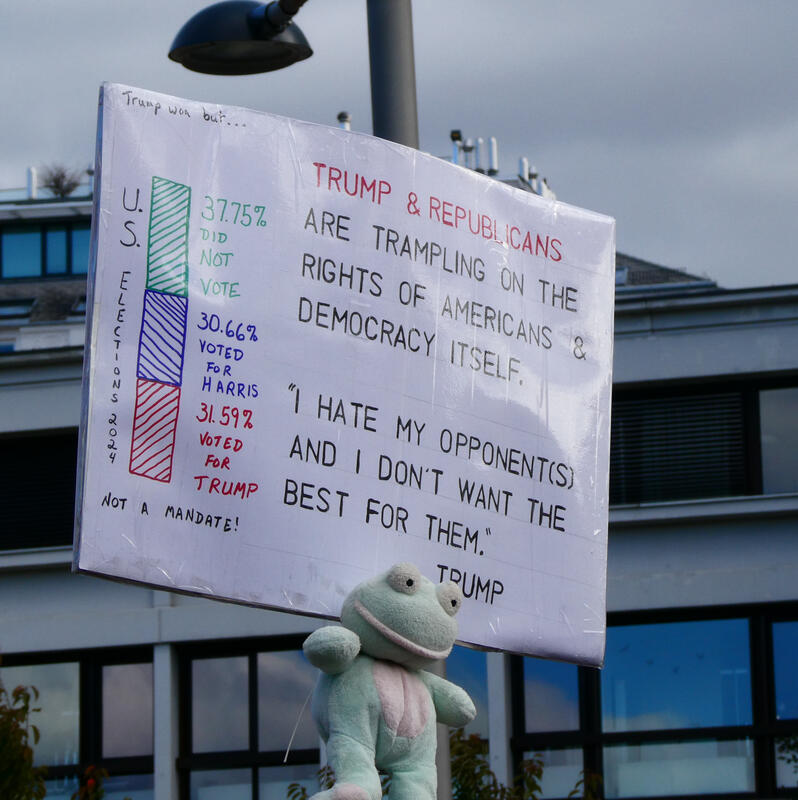 Trump won but...
U.S. ELECTIONS 2024
37.75%
DID
NOT
VOTE
30.66%
VOTED
FOR
HARRIS
31.59%
VOTED
FOR
TRUMP
NOT A MANDATE!
TRUMP & REPUBLICANS
ARE TRAMPLING ON THE
RIGHTS OF AMERICANS &
DEMOCRACY ITSELF.
"I HATE MY OPPONENT(S)
AND I DON'T WANT THE
BEST FOR THEM."
TRUMP